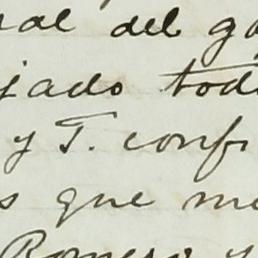 al del g
jado tod
y T. conf
s que me
Romero y